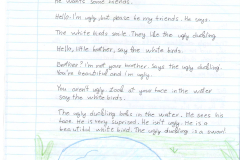 He wants some friends.
Hello. I'm ugly, but please be my friends. He says.
The white birds smile. They like the ugly duckling.
Hello, little brother, say the white birds.
Brother? I'm not your brother. Says the ugly duckling.
You're beautiful and I'm ugly.
You aren't ugly. Look at your face in the water
say the white birds.
The ugly duckling looks in the water. He sees his
face. He is very suprised. He isn't ugly. He is a
beautiful white bird. The ugly duckling is a swan!